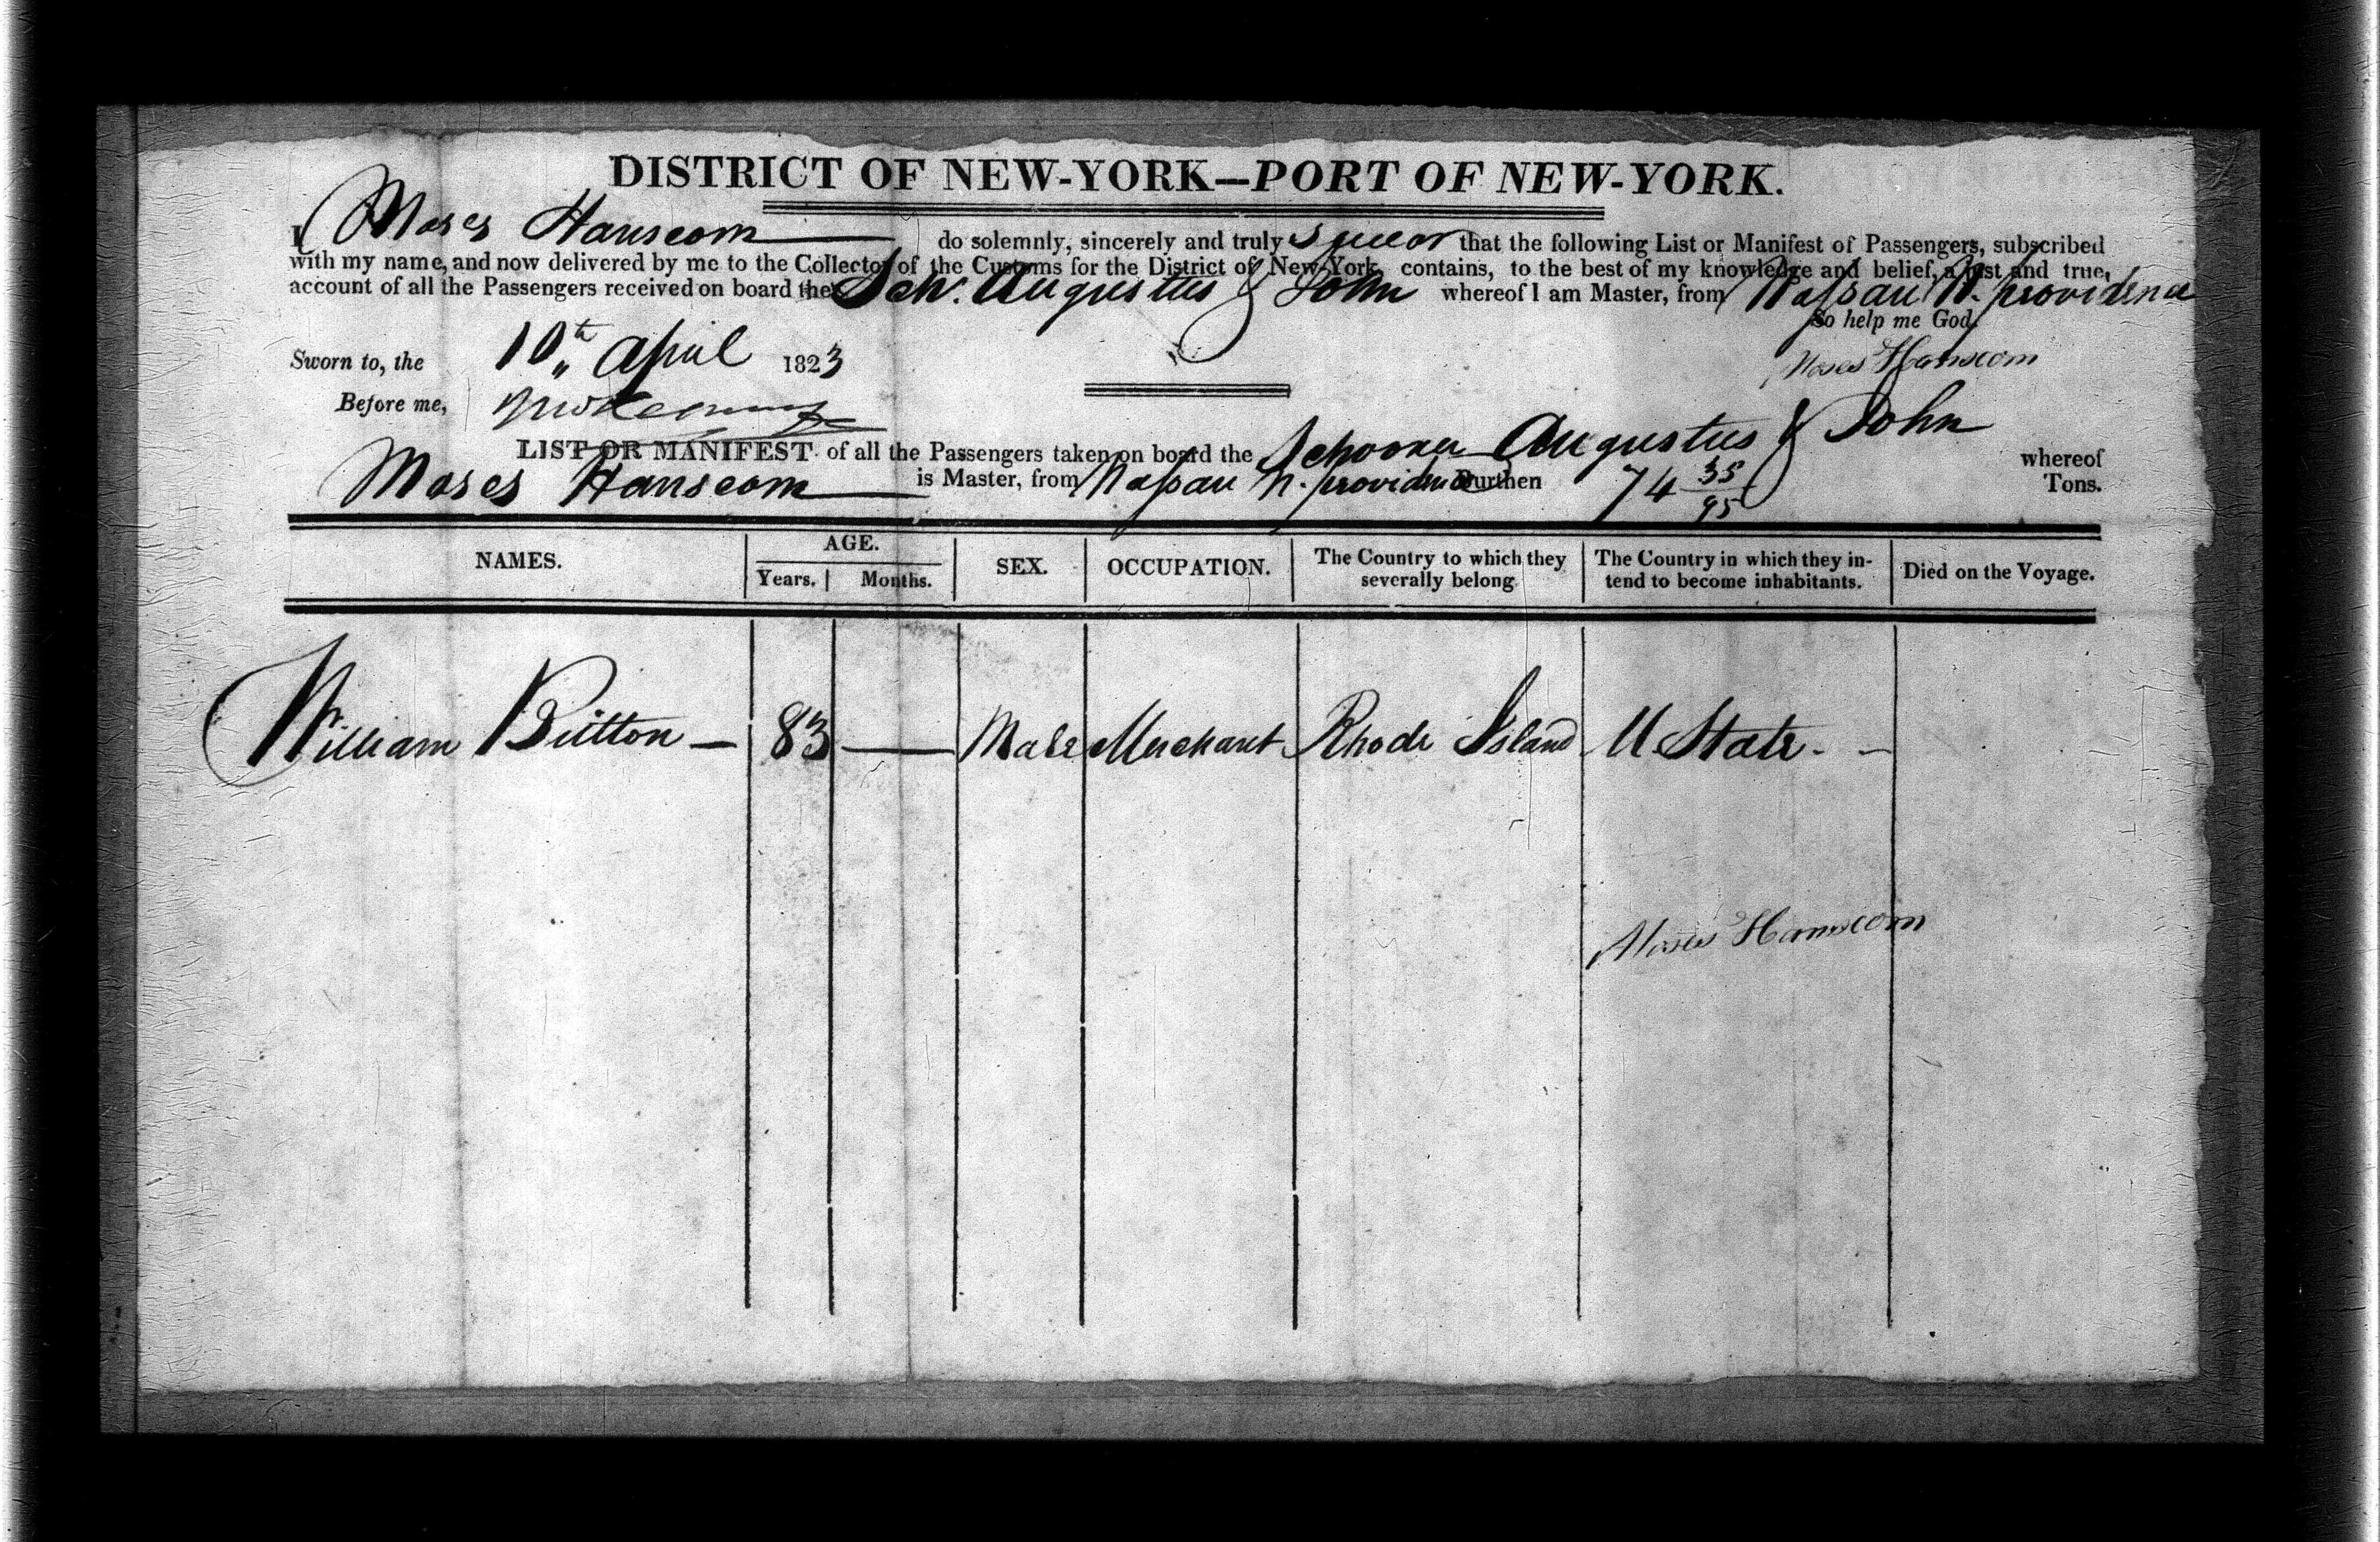 DISTRICT OF NEW-YORK—PORT OF NEW-YORK.
I Moses Hanscom do solemnly, sincerely and truly swear that the following List or Manifest of Passengers, subscribed
with my name, and now delivered by me to the Collector of the Customs for the District of New-York, contains, to the best of my knowledge and belief, a just and true,
account of all the Passengers received on board the Schr. Augustus & John whereof I am Master, from Nassau N. providence
So help me God.
Sworn to, the 10th April 1823
Moses Hanscom
Before me,
LIST OR MANIFEST of all the Passengers taken on board the Schooner Augustus & John whereof
Moses Hanscom is Master, from Nassau N. providence Burthen 74 35/95 Tons.
NAMES. AGE. Years. Months. SEX. OCCUPATION. The Country to which they severally belong The Country in which they intend to become inhabitants. Died on the Voyage.
William Britton — 83 — Male Merchant Rhode Island U State. -
Moses Hanscom